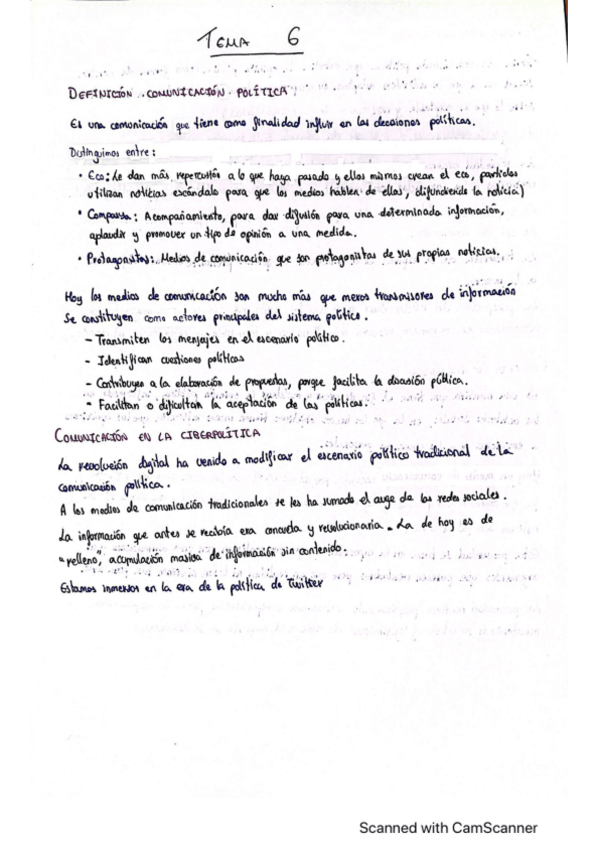 TEMA 6
DEFINICIÓN COMUNICACIÓN POLÍTICA
Es una comunicación que tiene como finalidad influir en las decisiones políticas.
Distinguimos entre:
• Eco: Le dan más repercusión a lo que haya pasado y ellos mismos crean el eco, partidos
utilizan noticias escándalo para que los medios hablen de ellas, difundiendo la noticia)
• Comparsa: Acompañamiento, para dar difusión para una determinada información,
aplaudir y promover un tipo de opinión a una medida.
• Protagonistas: Medios de comunicación que son protagonistas de sus propias noticias.
Hoy los medios de comunicación son mucho más que meros transmisores de información
Se constituyen como actores principales del sistema político.
- Transmiten los mensajes en el escenario político.
- Identifican cuestiones políticas
- Contribuyen a la elaboración de propuestas, porque facilita la discusión pública.
- Facilitan o dificultan la aceptación de las políticas.
COMUNICACIÓN EN LA CIBERPOLÍTICA
La revolución digital ha venido a modificar el escenario político tradicional de la
comunicación política.
A los medios de comunicación tradicionales se les ha sumado el auge de las redes sociales.
La información que antes se recibía era concreta y revolucionaria. La de hoy es de
"relleno", acumulación masiva de información sin contenido.
Estamos inmersos en la era de la política de Twitter
Scanned with CamScanner